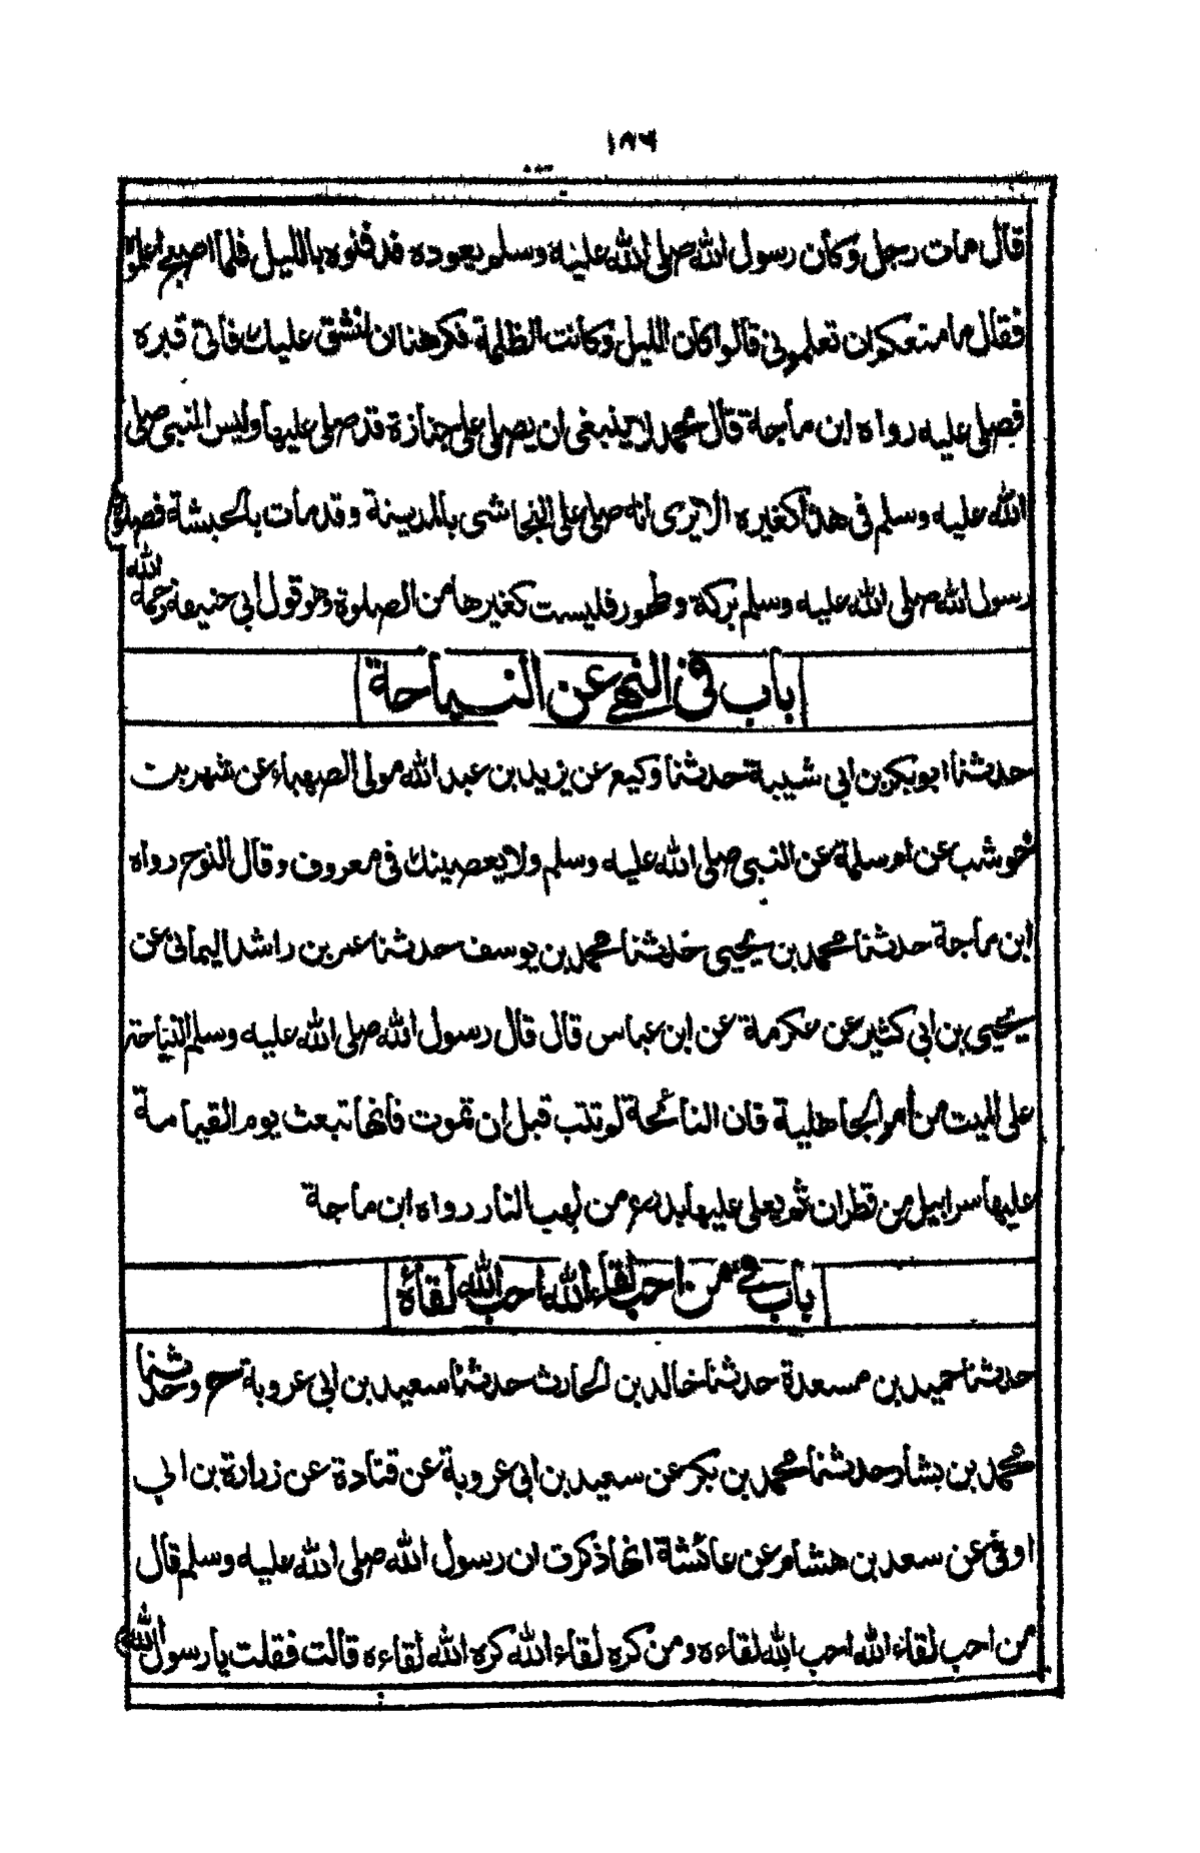 ١٨٦
قال مات رجل وكان رسول الله صلى الله عليه وسلم يعوده فدفنوه بالليل فلما اصبح اعلموه
فقال ما منعكم ان تعلمونى قالوا كان الليل وكانت الظلمة فكرهنا ان نشق عليك فاتى قبره
فصلى عليه رواه ابن ماجة قال محمد لا ينبغى ان يصلى على جنازة قد صلى عليها وليس النبى صلى
الله عليه وسلم فى هذا كغيره الا يرى انه صلى على النجاشى بالمدينة وقد مات بالحبشة فصلوة
رسول الله صلى الله عليه وسلم بركة وطهور فليست كغيرها من الصلوة وهو قول ابى حنيفة رحمه الله
باب فى النهى عن النياحة
حدثنا ابوبكر بن ابى شيبة حدثنا وكيع عن يزيد بن عبد الله مولى الصهباء عن شهر بن
حوشب عن ام سلمة عن النبى صلى الله عليه وسلم ولا يعصينك فى معروف وقال النوح رواه
ابن ماجة حدثنا محمد بن يحيى حدثنا محمد بن يوسف حدثنا عمر بن راشد اليمانى عن
يحيى بن ابى كثير عن عكرمة عن ابن عباس قال قال رسول الله صلى الله عليه وسلم النياحة
على الميت من امر الجاهلية فان النائحة لم تتب قبل ان تموت فانها تبعث يوم القيامة
عليها سرابيل من قطران ثم يعلى عليها بدرع من لهب النار رواه ابن ماجة
باب فى من احب لقاء الله احب الله لقاءه
حدثنا حميد بن مسعدة حدثنا خالد بن الحارث حدثنا سعيد بن ابى عروبة ح وحدثنا
محمد بن بشار حدثنا محمد بن بكر عن سعيد بن ابى عروبة عن قتادة عن زرارة بن ابى
اوفى عن سعد بن هشام عن عائشة انها ذكرت ان رسول الله صلى الله عليه وسلم قال
من احب لقاء الله احب الله لقاءه ومن كره لقاء الله كره الله لقاءه قالت فقلت يا رسول الله